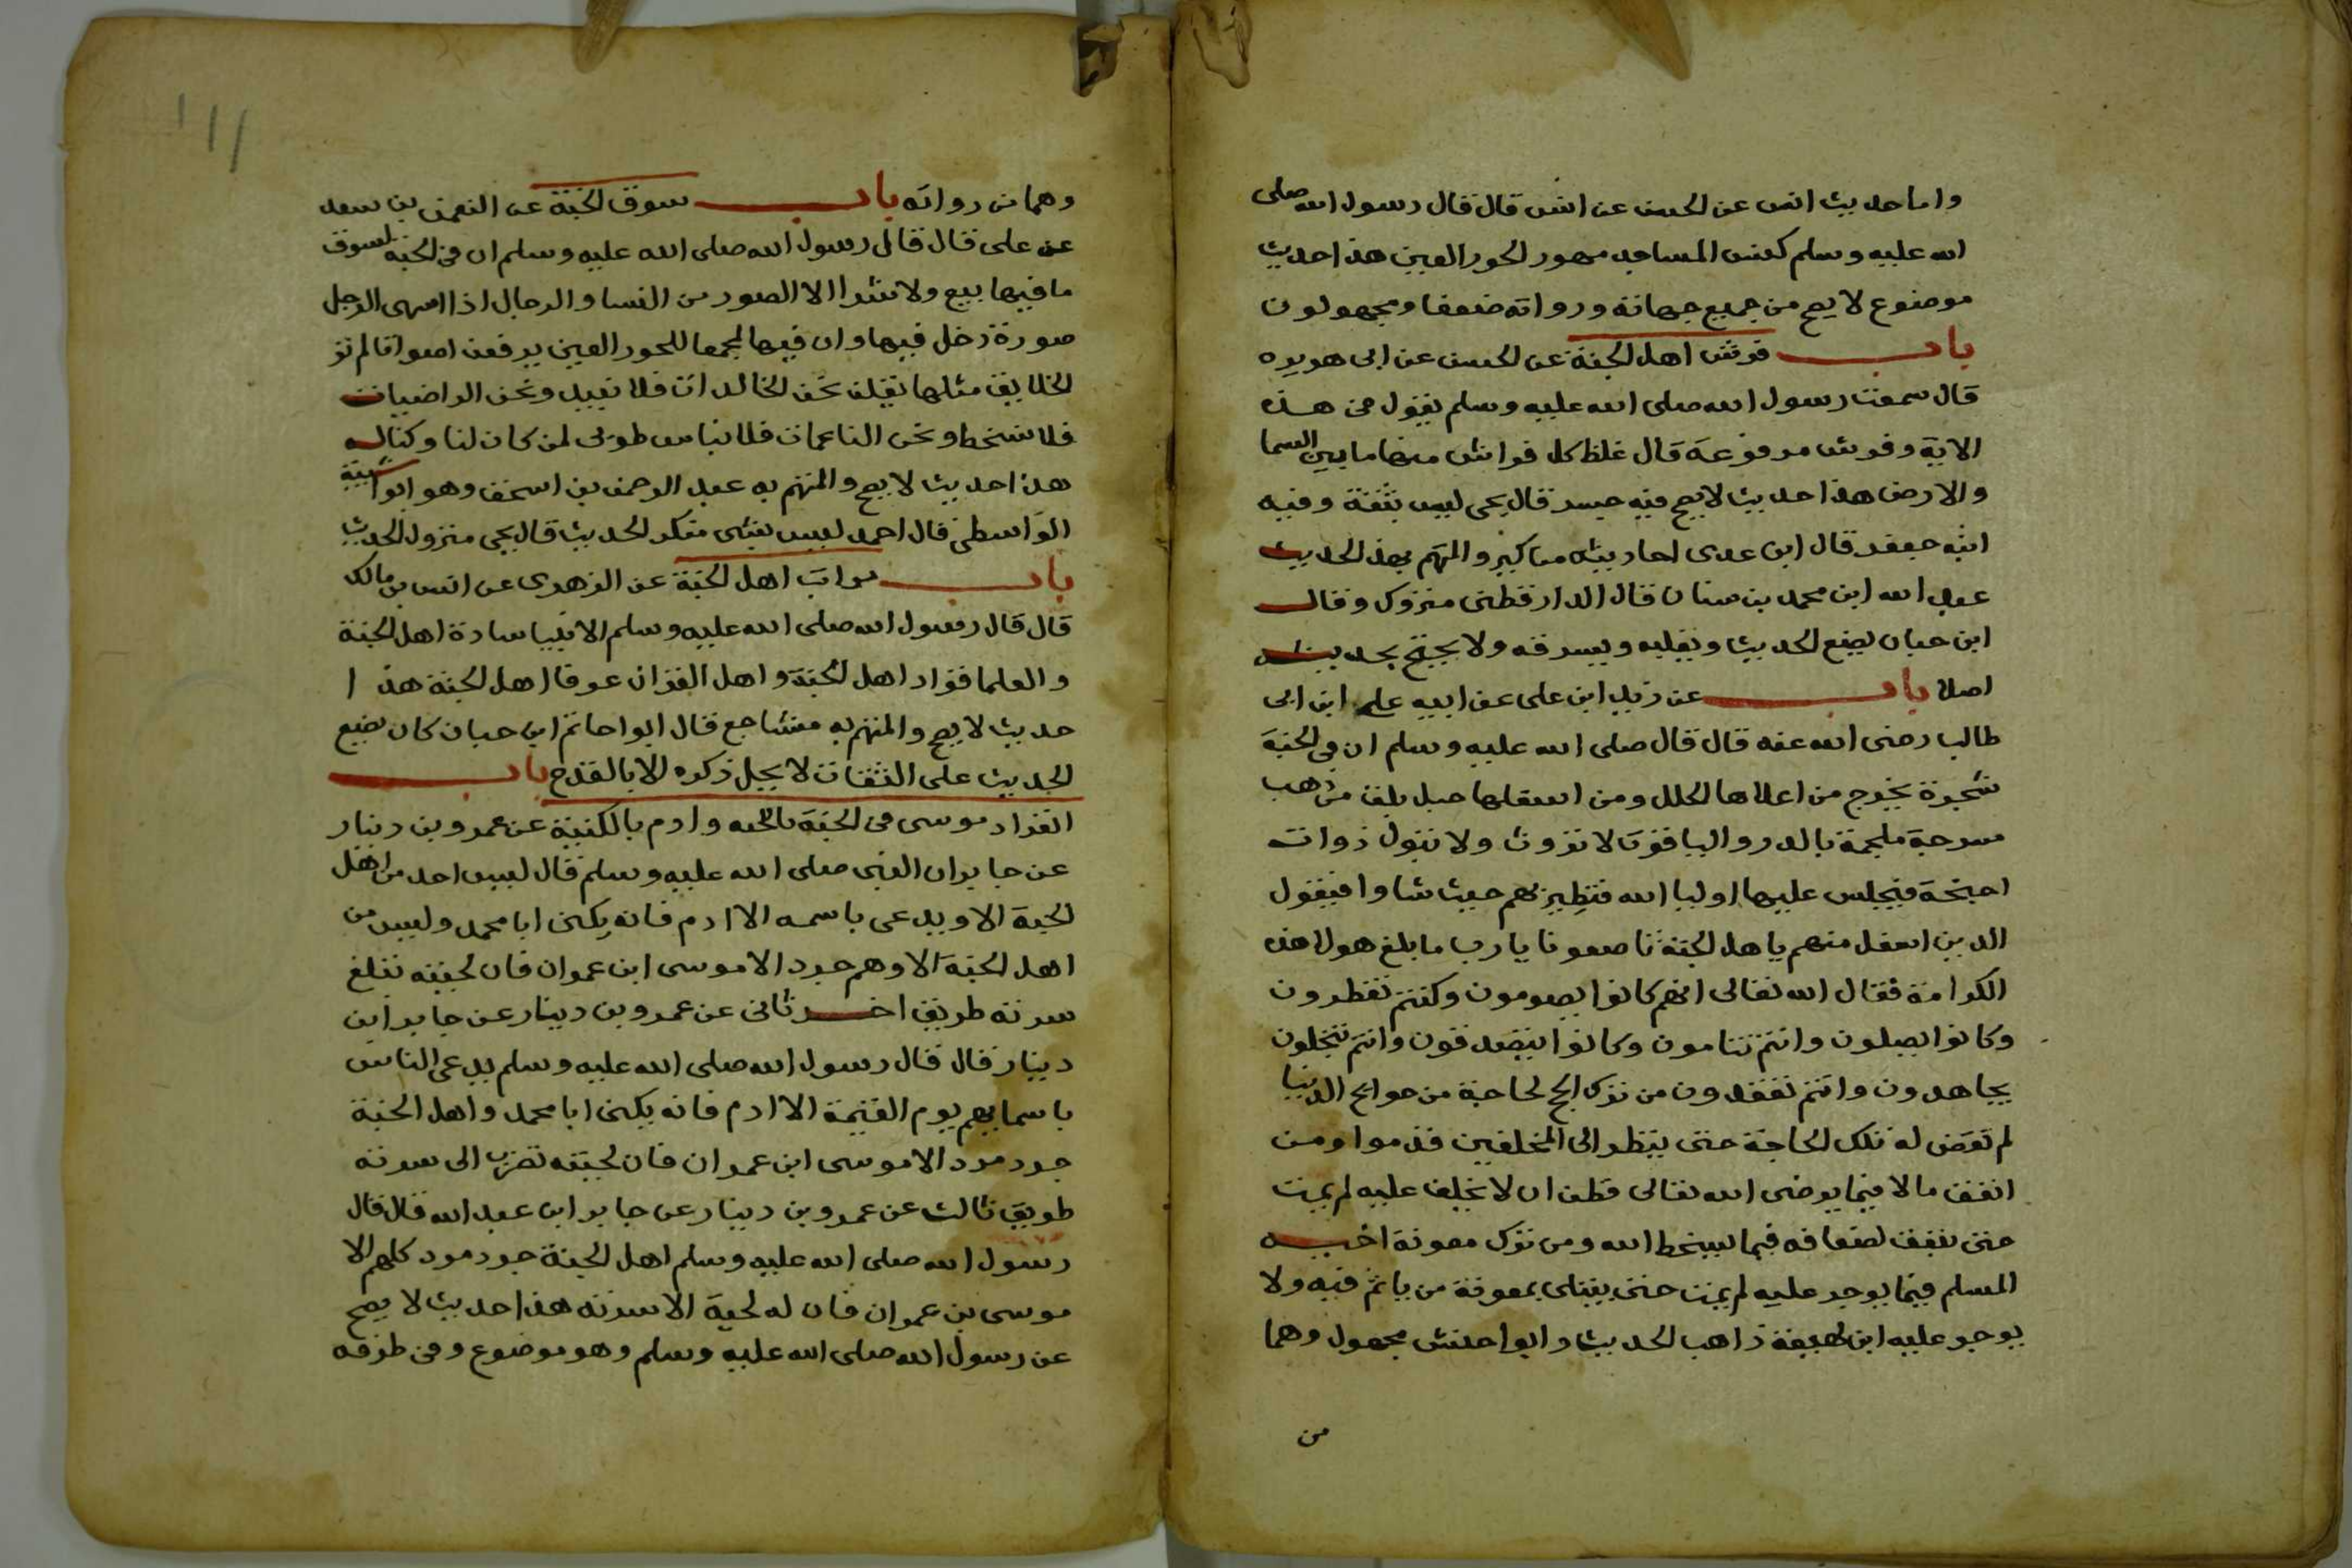 واما حديث انس عن الحسن عن انس قال قال رسول الله صلى
الله عليه وسلم كنس المساجد مهور الحور العين هذا حديث
موضوع لا يصح من جميع جهاته ورواته ضعفا ومجهولون
باب فرش اهل الجنة عن الحسن عن ابى هريره
قال سمعت رسول الله صلى الله عليه وسلم يقول فى هذه
الاية وفرش مرفوعة قال غلظ كل فراش منها ما بين السما
والارض هذا حديث لا يصح فيه جسر قال يحى ليس بثقة وفيه
ابنه جعفر قال ابن عدى احاديثه مناكير والمتهم بهذ الحديث
عبد الله ابن محمد بن سنان قال الدارقطنى متروك وقال
ابن حبان يضع الحديث ويقلبه ويسرقه ولا يحتج بحديثه
اصلا باب عن زيد ابن على عن ابيه على ابن ابى
طالب رضى الله عنه قال قال صلى الله عليه وسلم ان فى الجنة
شجرة يخرج من اعلاها الحلل ومن اسفلها خيل بلق من ذهب
سرجة ملجمة بالدر والياقوت لا تروث ولا تبول ذوات
اجنحة فيجلس عليها اوليا الله فتطير بهم حيث شاوا فيقول
الذين اسفل منهم ياهل الجنة ناصفونا يا رب ما بلغ هولا هذه
الكرامة فقال الله تعالى انهم كانوا يصومون وكنتم تفطرون
وكانوا يصلون وانتم تنامون وكانوا يتصدقون وانتم تبخلون
يجاهدون وانتم تقعدون من ترك الحج لحاجة من حوايج الدنيا
لم تقض له تلك الحاجة حتى ينظر الى المخلفين قدموا ومن
انفق مالا فيما يرضى الله تعالى فظن ان لا يخلف عليه لم يمت
حتى ينفق اضعافه فيما يسخط الله ومن ترك معونة اخيه
المسلم فيما يوجر عليه لم يمت حتى يبتلى بمعونة من ياثم فيه ولا
يوجر عليه ابن لهيعة ذاهب الحديث وابو احنش مجهول وهما
من
وهما من رواته باب سوق الجنة عن النعمن بن سعد
عن على قال قال رسول الله صلى الله عليه وسلم ان فى الجنة لسوق
ما فيها بيع ولا شرا الا الصور من النسا والرجال اذا اشتهى الرجل
صورة دخل فيها وان فيها لمجمعا للحور العين يرفعن اصواتا لم تر
الخلايق مثلها تقلن نحن الخالدات فلا نبيد ونحن الراضيات
فلا نسخط ونحن الناعمات فلا نباس طوبى لمن كان لنا وكنا له
هذا حديث لا يصح والمتهم به عبد الرحمن بن اسحق وهو ابوا شيبة
الواسطى قال احمد ليس بشى منكر الحديث قال يحى متروك الحديث
باب مراتب اهل الجنة عن الزهرى عن انس بن مالك
قال قال رسول الله صلى الله عليه وسلم الانبيا سادة اهل الجنة
والعلما قواد اهل الجنة واهل القران عرفا اهل الجنة هذا
حديث لا يصح والمتهم به مشاجع قال ابوا حاتم ابن حبان كان يضع
الحديث على الثقات لا يحل ذكره الا بالقدح باب
انفراد موسى فى الجنة باللحيه وادم بالكنية عن عمرو بن دينار
عن جابر ان النبى صلى الله عليه وسلم قال ليس احد من اهل
الجنة الا ويدعى باسمه الا ادم فانه يكنى ابا محمد وليس من
اهل الجنة الا وهم جرد الا موسى ابن عمران فان لحيته تبلغ
سرته طريق اخر ثانى عن عمرو بن دينار عن جابر ابن
دينار قال قال رسول الله صلى الله عليه وسلم يدعى الناس
باسمايهم يوم القيمة الا ادم فانه يكنى ابا محمد واهل الجنة
جرد مرد الا موسى ابن عمران فان لحيته تضرب الى سرته
طريق ثالث عن عمرو بن دينار عن جابر ابن عبد الله قال قال
رسول الله صلى الله عليه وسلم اهل الجنة جرد مرد كلهم الا
موسى بن عمران فان له لحية الا سرته هذا حديث لا يصح
عن رسول الله صلى الله عليه وسلم وهو موضوع وفى طرقه